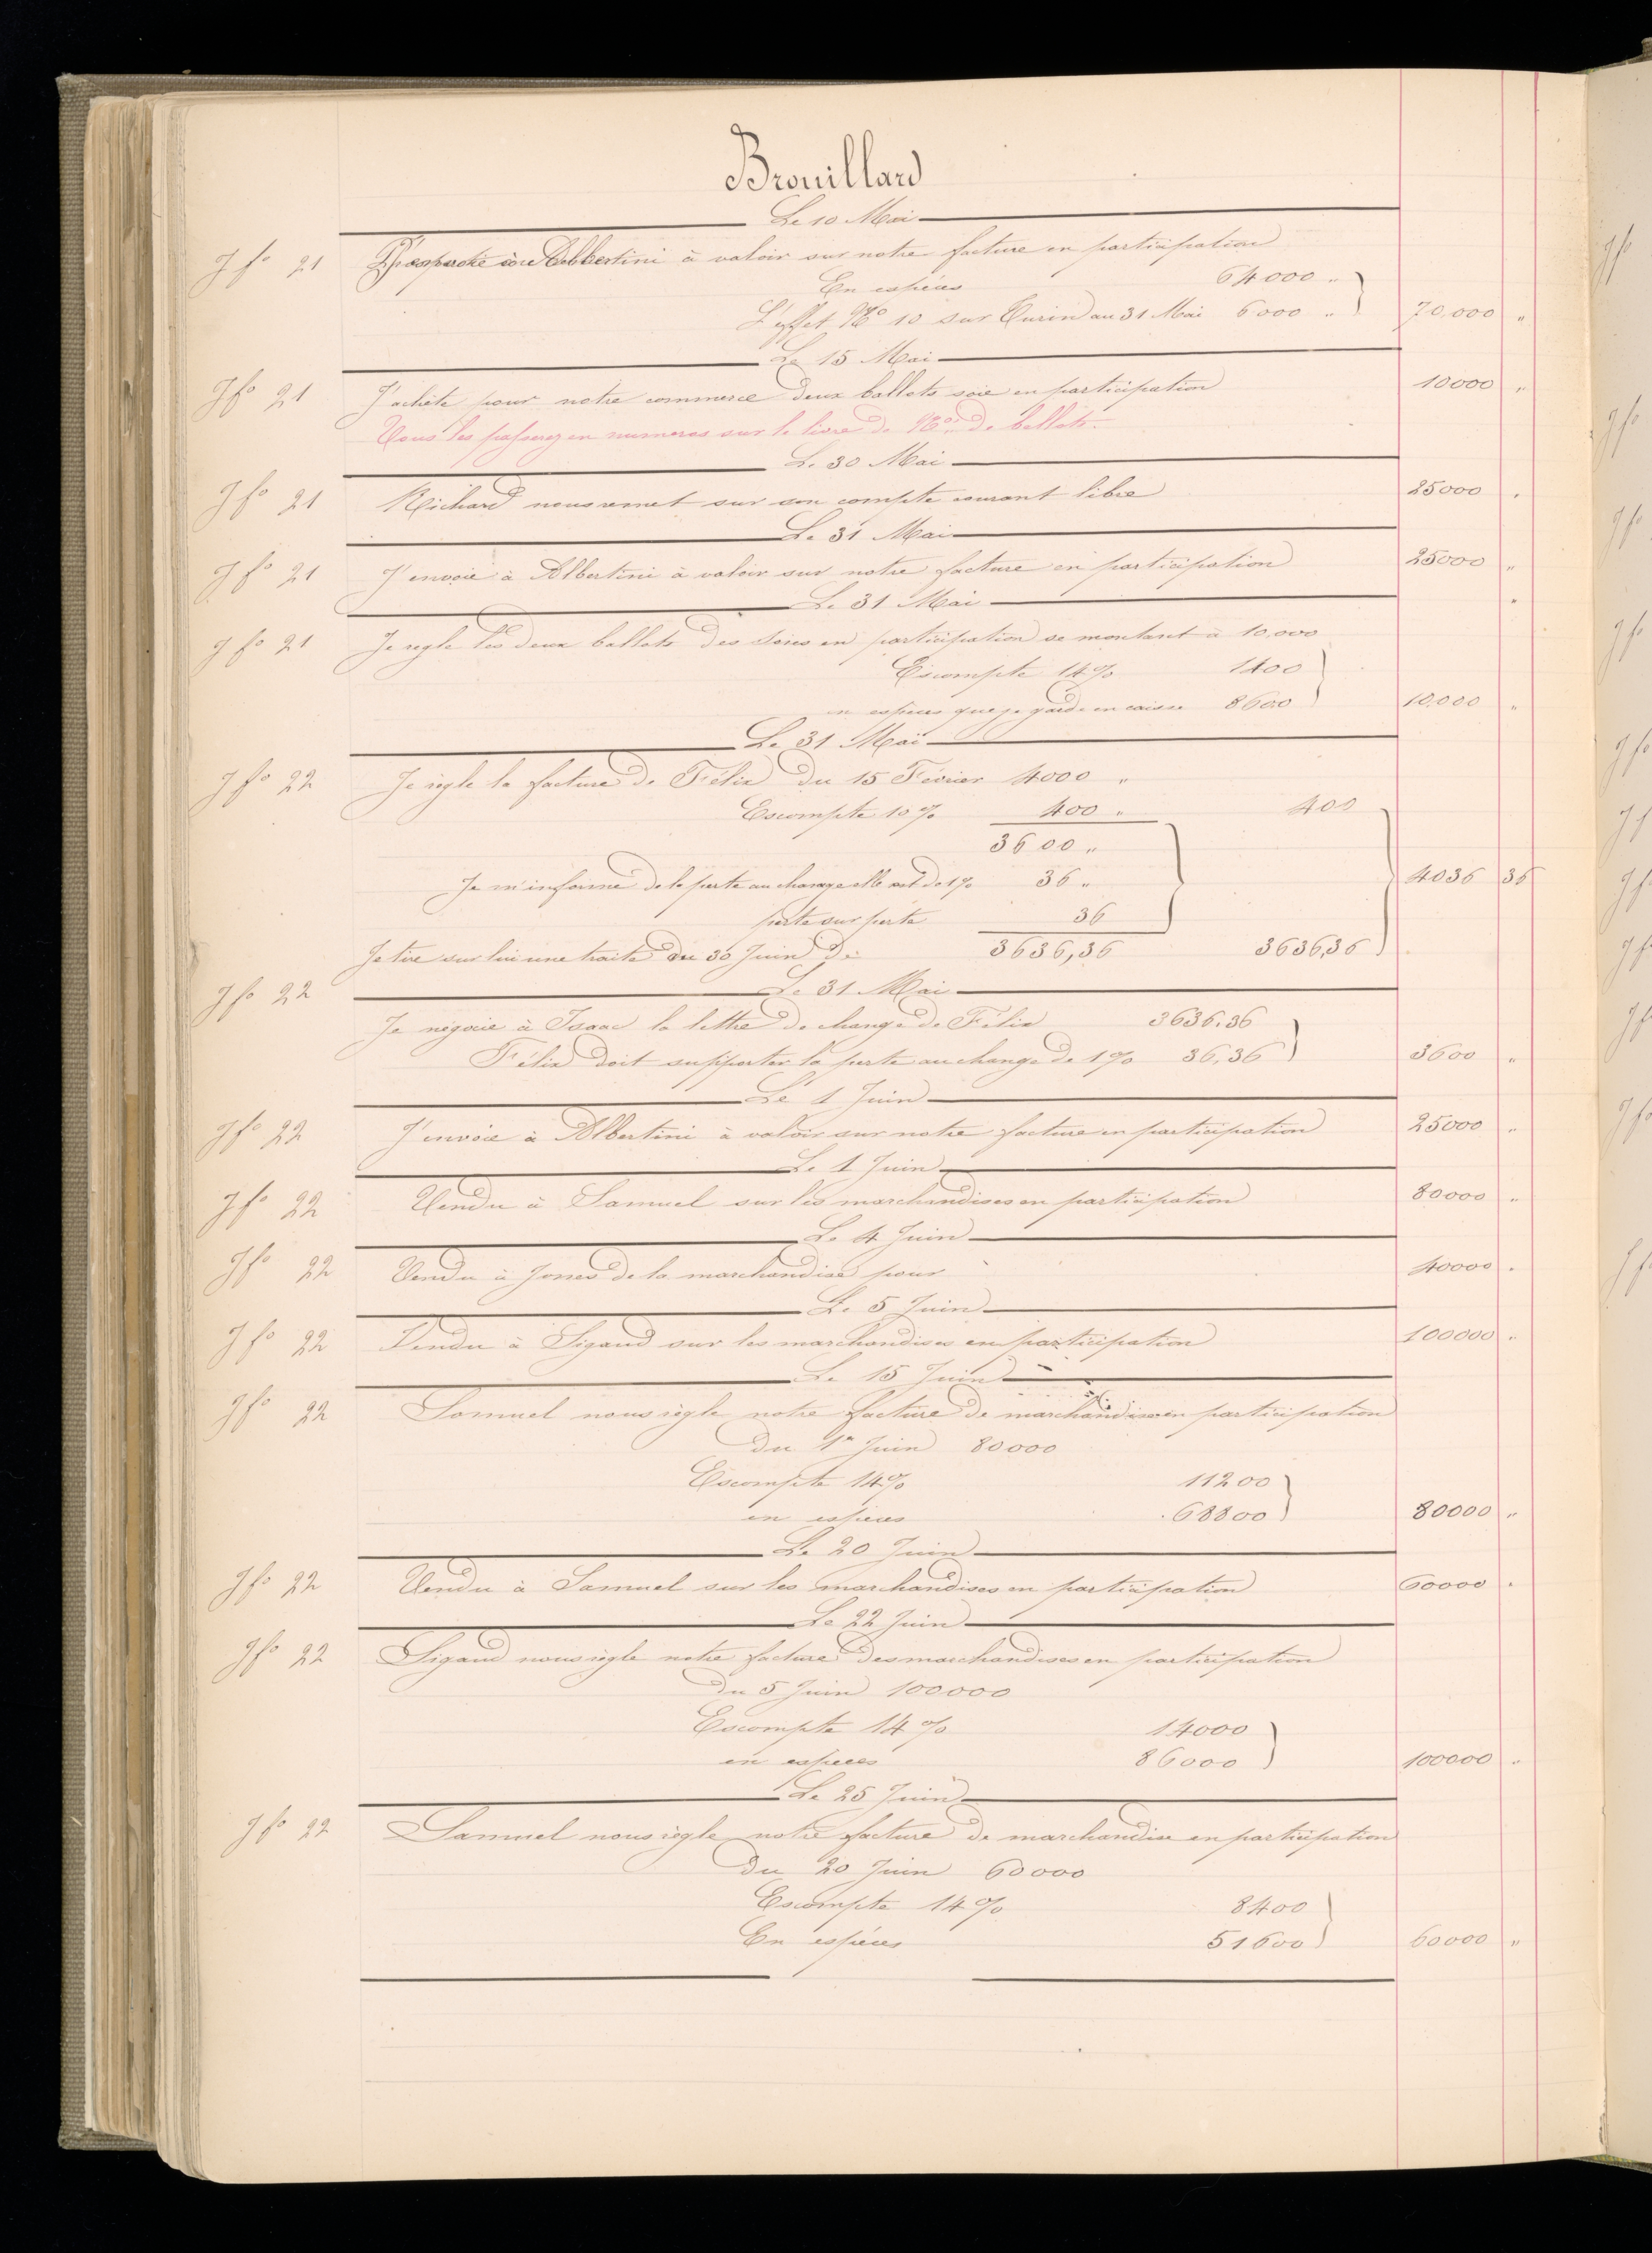 Brouillard
Le 10 Mai
J fo 21 à Albertini à valoir sur notre facture en participation
En espèces 64000 "
L'effet No 10 sur Turin au 31 Mai 6000 " 70,000 "
Le 15 Mai
J fo 21 J'achète pour notre commerce deux ballots soie en participation 10000 "
Vous les passerez en numeros sur le livre de Nos de ballots.
Le 30 Mai
J fo 21 Richard nous remet sur son compte courant libre 25000 "
Le 31 Mai
J fo 21 J'envoie à Albertini à valoir sur notre facture en participation 25000 "
Le 31 Mai "
J fo 21 Je regle les deux ballots des soies en participation se montant à 10,000
Escompte 14% 1400
en espèces que je garde en caisse 8600 10,000 "
Le 31 Mai
J fo 22 Je règle la facture de Félix du 15 Février 4000 "
Escompte 10% 400 " 400
3600 "
Je m'informe de la perte au change elle est de 1% 36 " 4036 36
perte sur perte 36
Je tire sur lui une traite au 30 Juin de 3636,36 3636,36
Le 31 Mai
J fo 22 Je négocie à Isaac la lettre de change de Félix 3636.36
Félix doit supporter la perte au change de 1% 36,36 3600 "
Le 1 Juin
J fo 22 J'envoie à Albertini à valoir sur notre facture en participation 25000 "
Le 1 Juin
J fo 22 Vendu à Samuel sur les marchandises en participation 80000 "
Le 4 Juin
J fo 22 Vendu à Jones de la marchandise pour 40000 "
Le 5 Juin
J fo 22 Vendu à Sigaud sur les marchandises en participation 100000 "
Le 15 Juin
J fo 22 Samuel nous règle notre facture de marchandise en participation
du 1er Juin 80000
Escompte 14% 11200
en espèces 68800 80000 "
Le 20 Juin
J fo 22 Vendu à Samuel sur les marchandises en participation 60000 "
Le 22 Juin
J fo 22 Sigaud nous règle notre facture des marchandises en participation
du 5 Juin 100000
Escompte 14% 14000
en espèces 86000 100000 "
Le 25 Juin
J fo 22 Samuel nous règle notre facture de marchandise en participation
du 20 Juin 60000
Escompte 14% 8400
En espèces 51600 60000 "